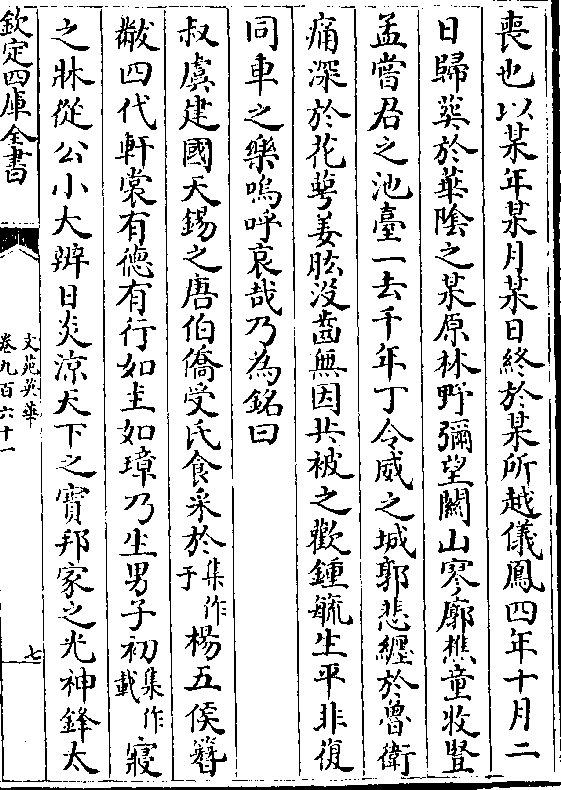 喪也以某年某月某日終於某所越儀鳳四年十月二
日歸葬於華陰之某原林野彌望關山寥廓樵童牧豎
孟嘗君之池臺一去千年丁令威之城郭悲纏於魯衛
痛深於花萼姜肱沒齒無因共被之歡鍾毓生平非復
同車之樂嗚呼哀哉乃為銘曰
叔虞建國天錫之唐伯僑受氏食采於集作于楊五侯簪
黻四代軒裳有德有行如圭如璋乃生男子初集作載寢
之牀從公小大辨日炎涼天下之寶邦家之光神鋒太
欽定四庫全書
文苑英華
卷九百六十一
七